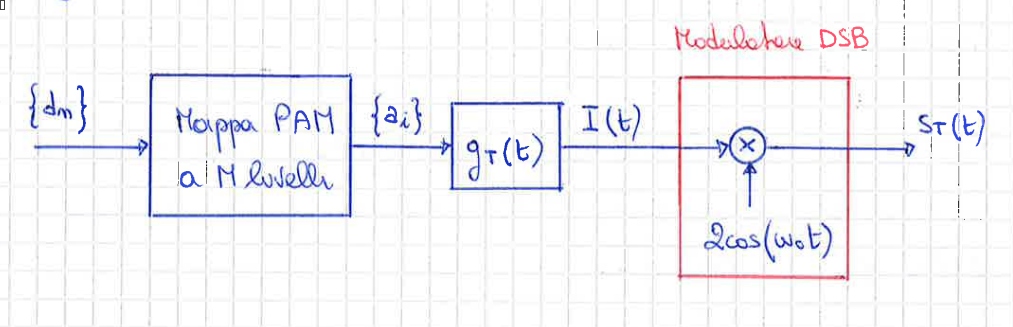 Modulatore DSB
{dn}
Mappa PAM
a M livelli
{ai}
gT(t)
I(t)
×
2cos(ω0t)
sT(t)